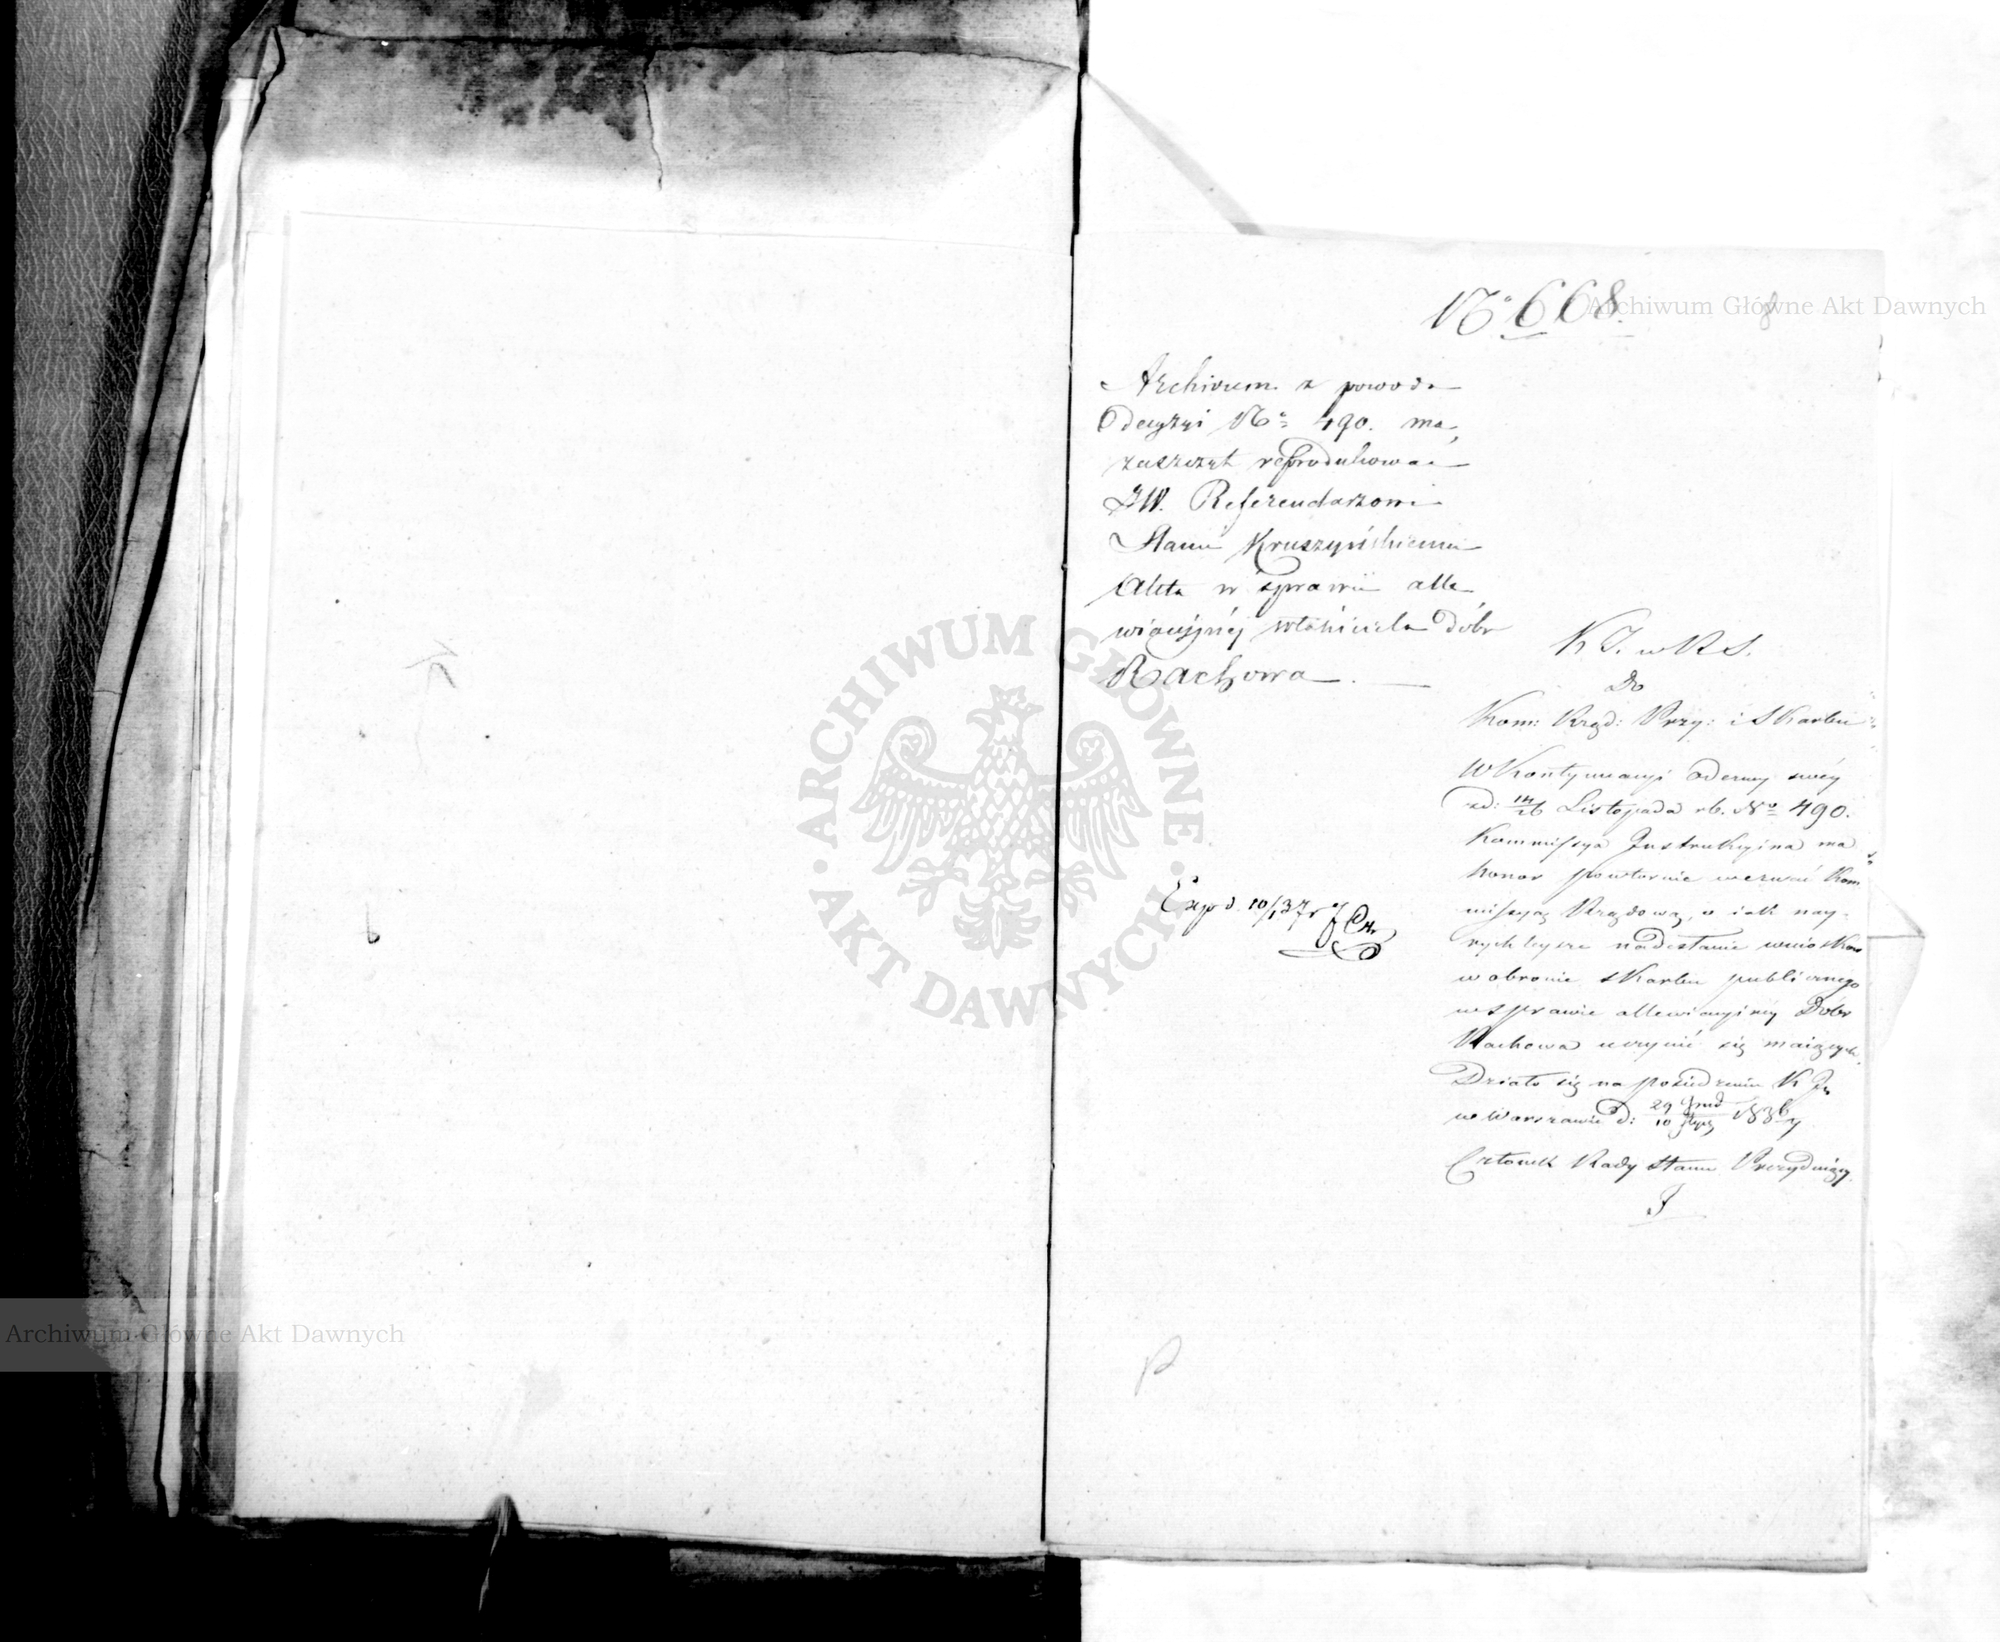 No 668.
8
Archiwum z powodu
Decyzyi No 490. ma
zaszczyt reprodukować
JW. Referendarzowi
Stanu Kruszyńskiemu
Akta w sprawie alle
wiacyjnej właściciela Dóbr
Rachowa.
Exped. 10/1 37 r
K J. w K S.
Do
Kom: Rząd: Przy: i Skarbu
W kontynuacyi odezwy swéy
z d: 14/26 Listopada rb. No 490.
Kommissya Instrukcyina ma
honor powtórnie wezwać Kom
missyą Rządową, o iak nay-
rychleysze nadesłanie wniosków
w obronie Skarbu publicznego
w sprawie allewiacyiney Dóbr
Rachowa uczynić się maiących.
Działo się na posiedzeniu K J
w Warszawie d: 29 Grud / 10 Stycz 1836/7
Członek Rady Stanu Prezyduiący
Archiwum Główne Akt Dawnych
Archiwum Główne Akt Dawnych
ARCHIWUM GŁÓWNE · AKT DAWNYCH ·